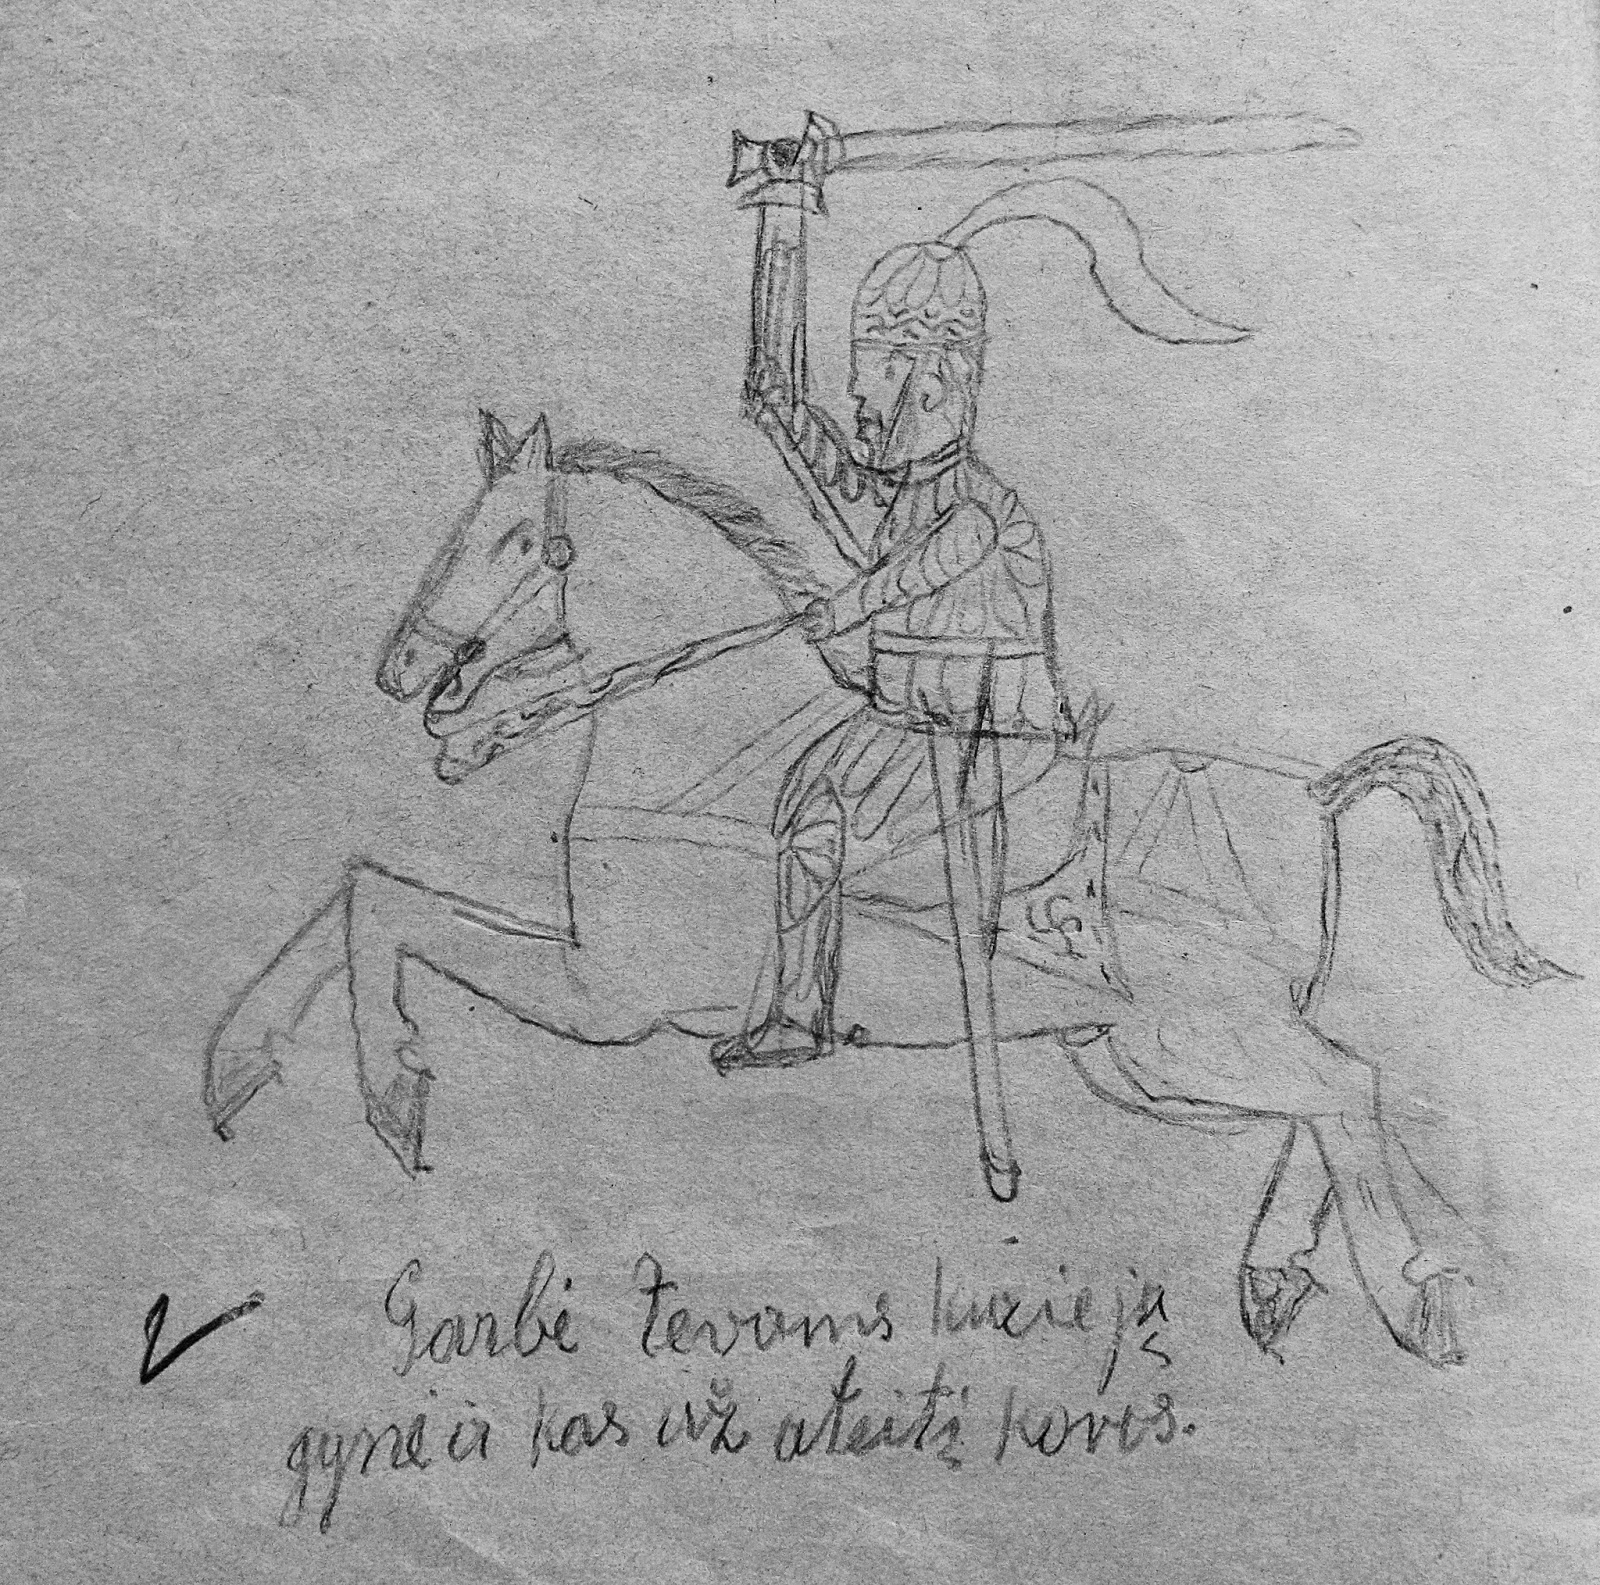 Garbė tėvams kurie ją
gynė ir kas už ateitį kovės.